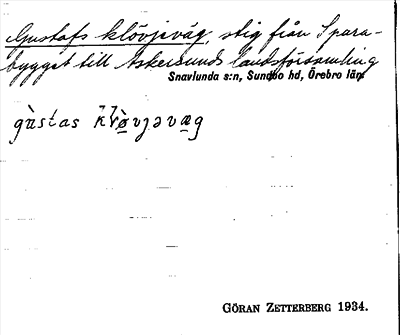 Gustafs klövjeväg, stig från Spara-
bygget till Askersunds landsförsamling
Snavlunda s:n, Sundbo hd, Örebro län
gùstas k̄l̀øvjəvæg
GÖRAN ZETTERBERG 1934.